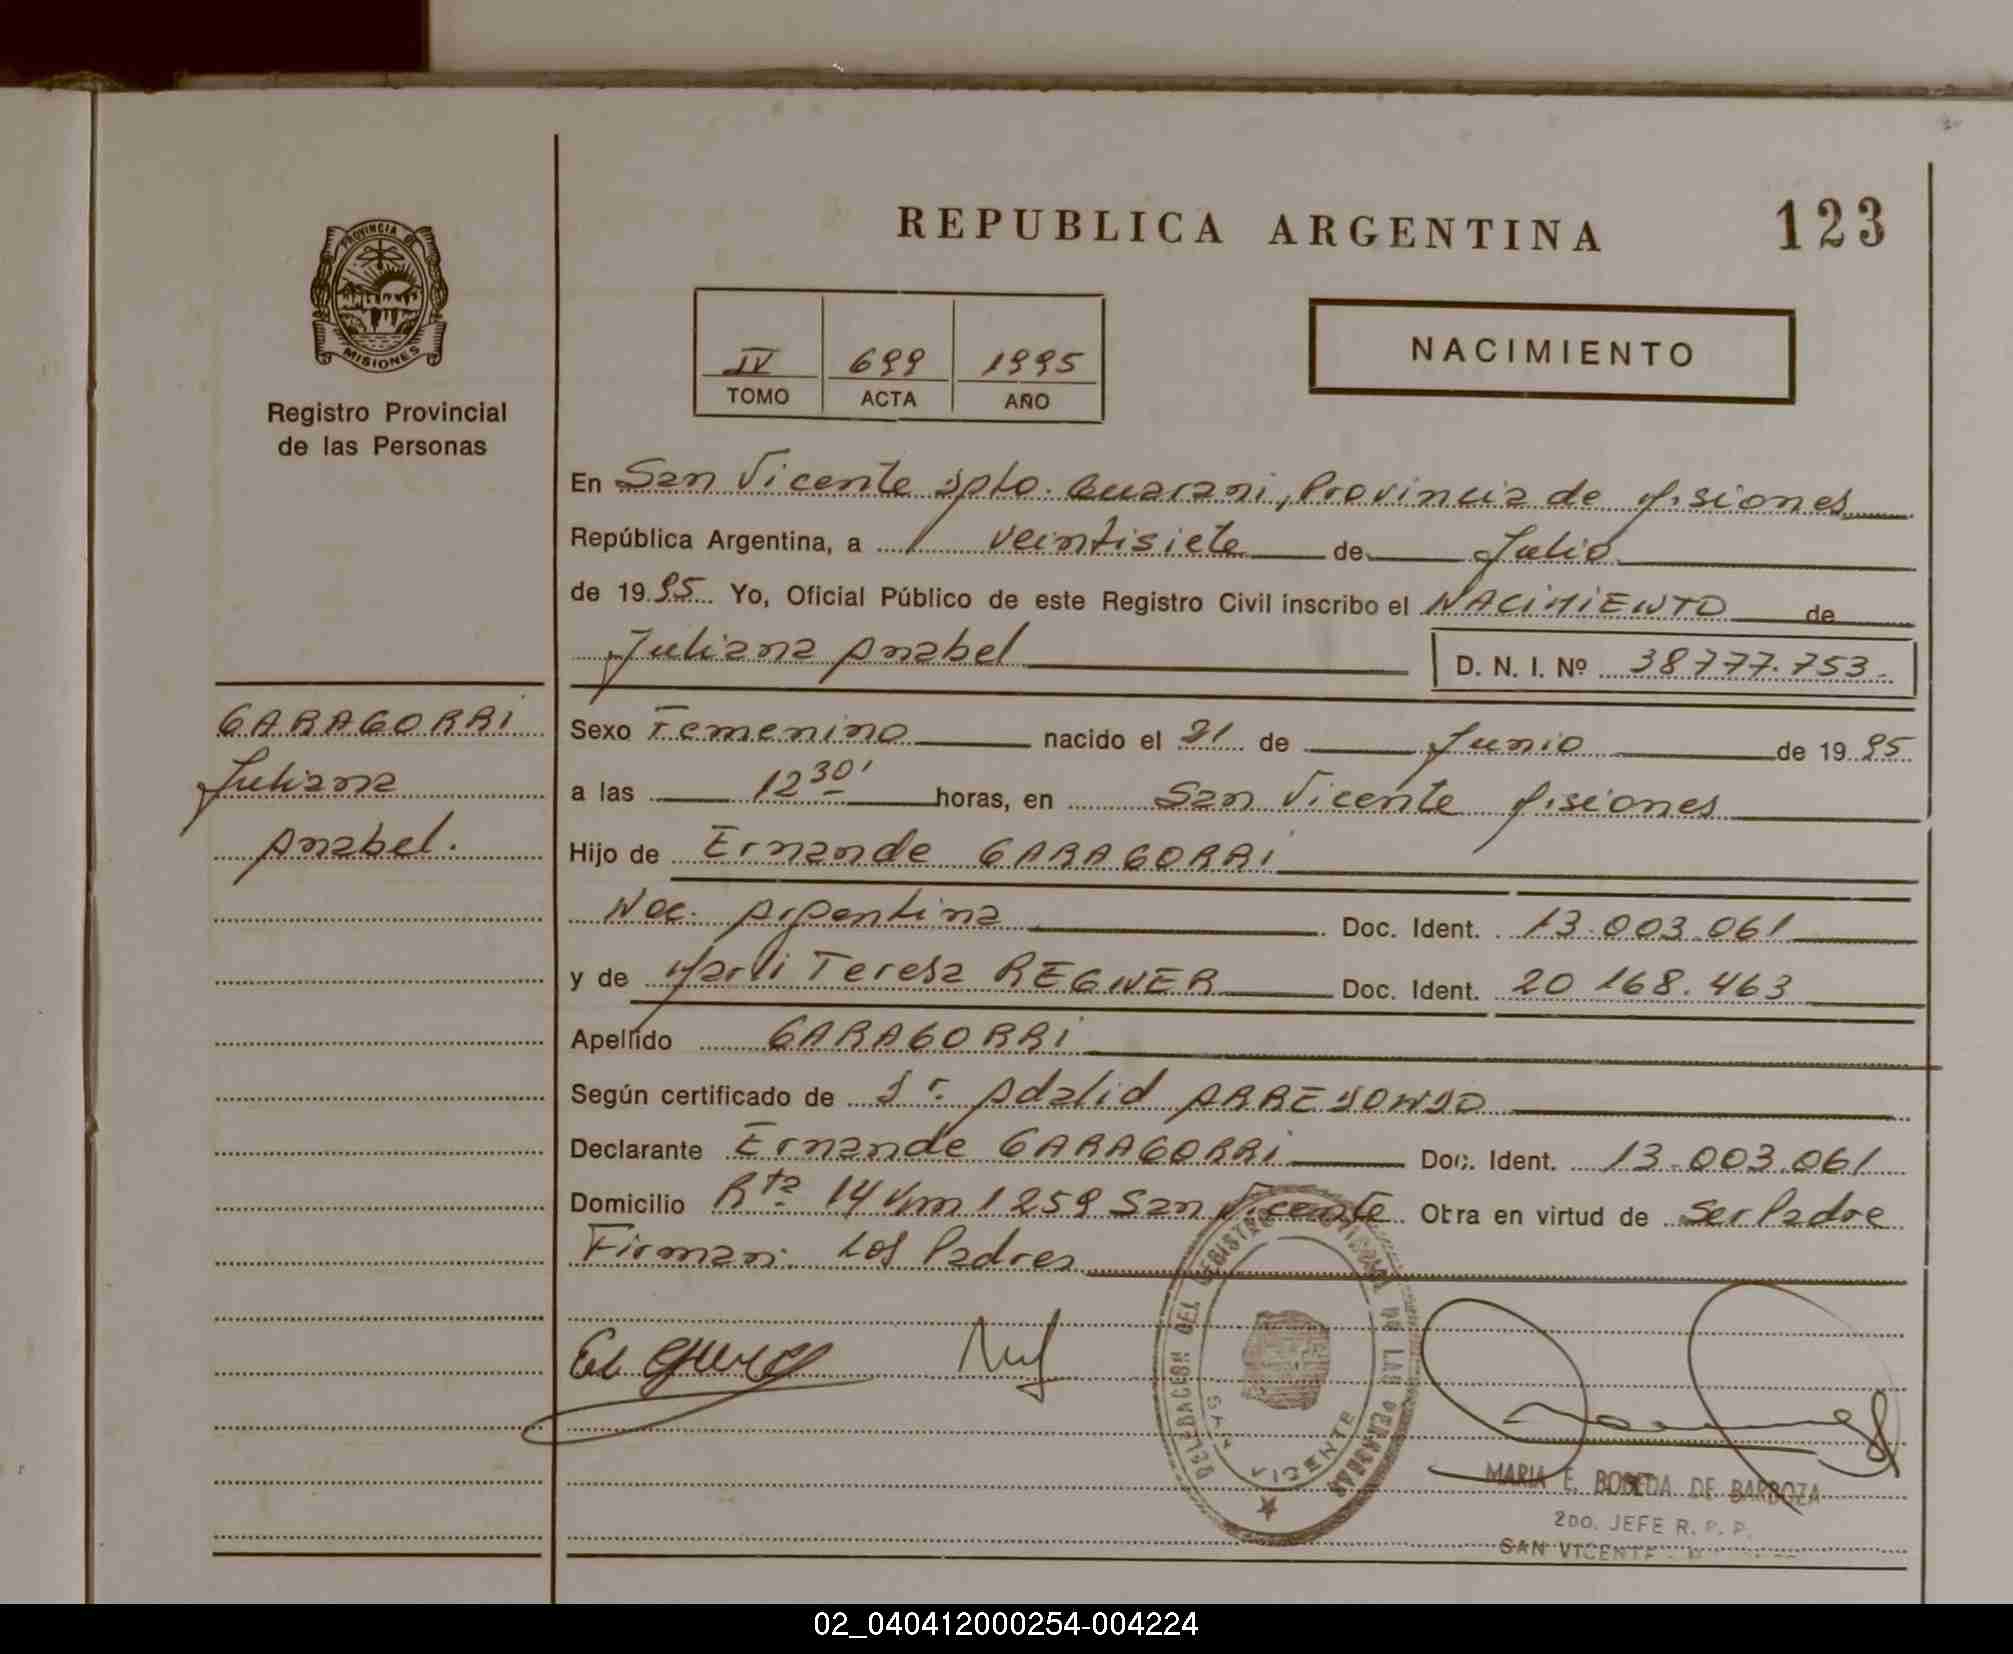 123
REPUBLICA ARGENTINA
PROVINCIA DE
MISIONES
Registro Provincial
de las Personas
IV 699 1995
TOMO ACTA AÑO
NACIMIENTO
En San Vicente Dpto. Guarani, Provincia de Misiones
República Argentina, a veintisiete de Julio
de 19 95 Yo, Oficial Público de este Registro Civil inscribo el NACIMIENTO de
Juliana Anabel D. N. I. Nº 38777.753.
GARAGORRI
Juliana
Anabel.
Sexo Femenino nacido el 21 de Junio de 19 95
a las 12 30' horas, en San Vicente Misiones
Hijo de Ernande GARAGORRI
Nac. Argentina Doc. Ident. 13.003.061
y de Marli Teresa REGNER Doc. Ident. 20 168.463
Apellido GARAGORRI
Según certificado de Dr. Adalid ARREDONDO
Declarante Ernande GARAGORRI Doc. Ident. 13.003.061
Domicilio Rta 14 Km 1259 San Vicente Obra en virtud de Ser Padre
Firman: Los Padres
DELEGACION DEL REGISTRO PROVINCIAL DE LAS PERSONAS
SAN VICENTE
MARIA E. BOBEDA DE BARBOZA
2DO. JEFE R. P. P.
SAN VICENTE
02_040412000254-004224